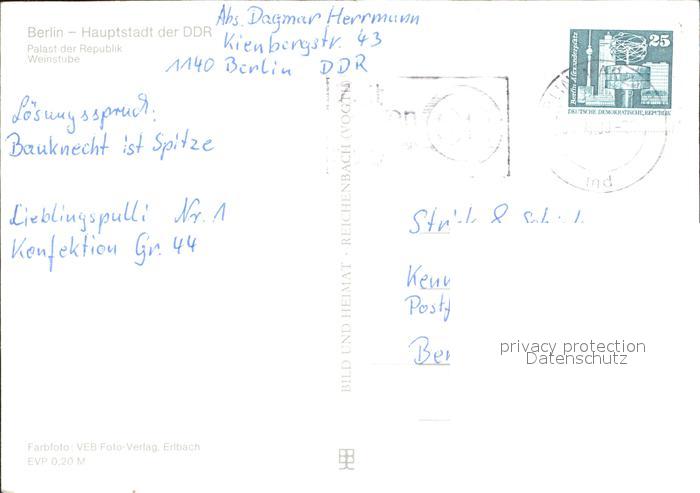 Abs. Dagmar Herrmann
Kienbergstr. 43
1140 Berlin DDR
Berlin – Hauptstadt der DDR
Palast der Republik
Weinstube
25
Berlin, Alexanderplatz
DEUTSCHE DEMOKRATISCHE REPUBLIK
Lösungsspruch:
Bauknecht ist Spitze
Lieblingspulli Nr. 1
Konfektion Gr. 44
BILD UND HEIMAT · REICHENBACH (VOGTL
&
privacy protection
Datenschutz
Farbfoto: VEB Foto-Verlag, Erlbach
EVP 0,20 M